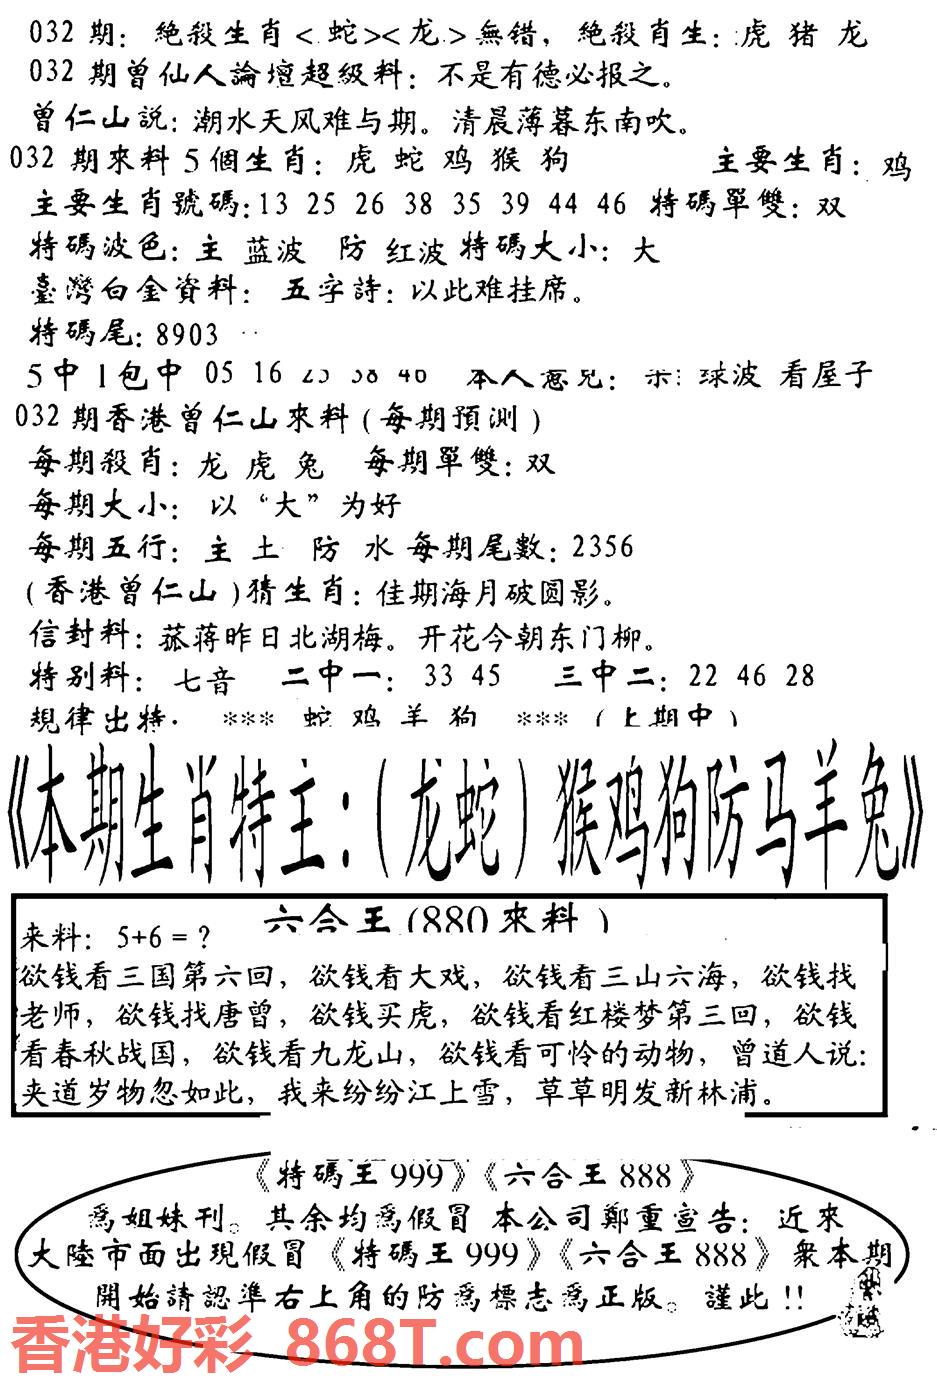 032 期: 絶殺生肖<蛇><龙>無错, 絶殺肖生: 虎 猪 龙
032 期曾仙人論壇超級料: 不是有德必报之。
曾仁山説: 潮水天风难与期。清晨薄暮东南吹。
032 期來料 5 個生肖: 虎 蛇 鸡 猴 狗 主要生肖: 鸡
主要生肖號碼: 13 25 26 38 35 39 44 46 特碼單雙: 双
特碼波色: 主 蓝波 防 红波 特碼大小: 大
臺灣白金資料: 五字詩: 以此难挂席。
特碼尾: 8903
5 中 1 包中 05 16 25 38 46 本人意見: 球波 看屋子
032 期香港曾仁山來料 (每期預測)
每期殺肖: 龙 虎 兔 每期單雙: 双
每期大小: 以“大”为好
每期五行: 主 土 防 水 每期尾數: 2356
(香港曾仁山)猜生肖: 佳期海月破圆影。
信封料: 菰蒋昨日北湖梅。开花今朝东门柳。
特别料: 七音 二中一: 33 45 三中二: 22 46 28
規律出特: *** 蛇 鸡 羊 狗 *** (上期中)
《本期生肖特主:(龙蛇)猴鸡狗防马羊兔》
六合王(880來料)
来料: 5+6=?
欲钱看三国第六回, 欲钱看大戏, 欲钱看三山六海, 欲钱找
老师, 欲钱找唐曾, 欲钱买虎, 欲钱看红楼梦第三回, 欲钱
看春秋战国, 欲钱看九龙山, 欲钱看可怜的动物, 曾道人说:
夹道岁物忽如此, 我来纷纷江上雪, 草草明发新林浦。
《特碼王 999》《六合王 888》
爲姐妹刊。其余均爲假冒 本公司鄭重宣告: 近來
大陸市面出現假冒《特碼王 999》《六合王 888》衆本期
開始請認準右上角的防爲標志爲正版。謹此!!
香港好彩 868T.com